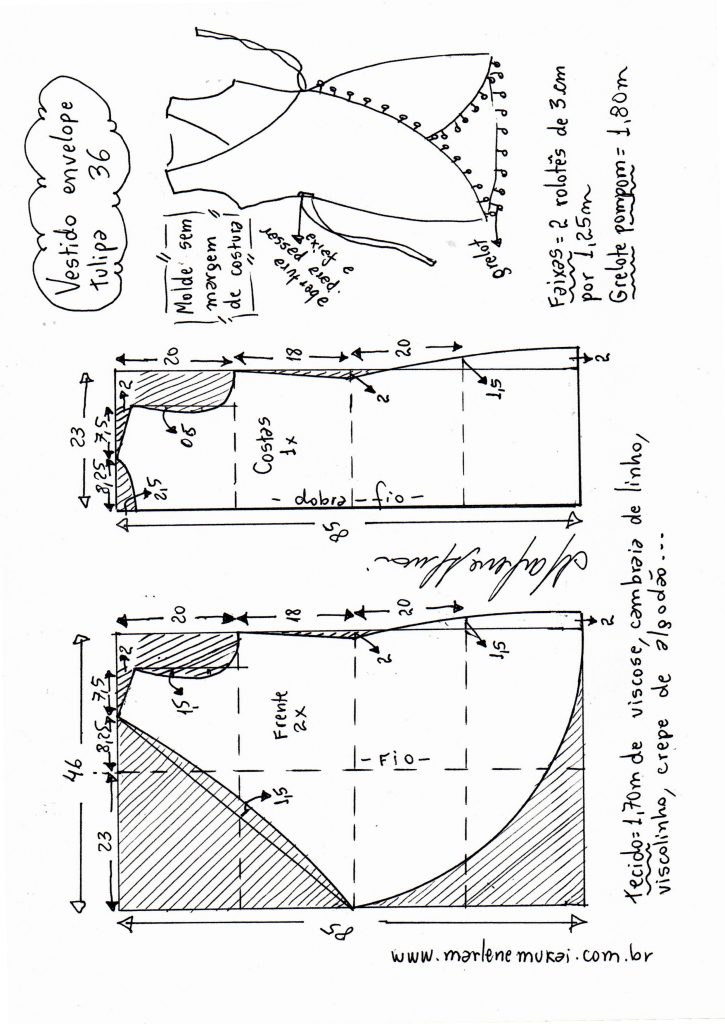 Vestido envelope
tulipa 36
Molde sem
margem
de costura
abertura
para passar
a faixa
grelot
Faixas = 2 rolotês de 3 cm
por 1,25m
Grelote pompom = 1,80m
20
18
20
23
8,25
7,5
2
2,5
0,5
2
1,5
2
Costas
1x
- fio - dobra -
85
Marlene Mukai
20
18
20
46
23
8,25
7,5
2
1,5
2
1,5
2
1,5
Frente
2x
- Fio -
85
Tecido = 1,70m de viscose, cambraia de linho,
viscolinho, crepe de algodão...
www.marlenemukai.com.br